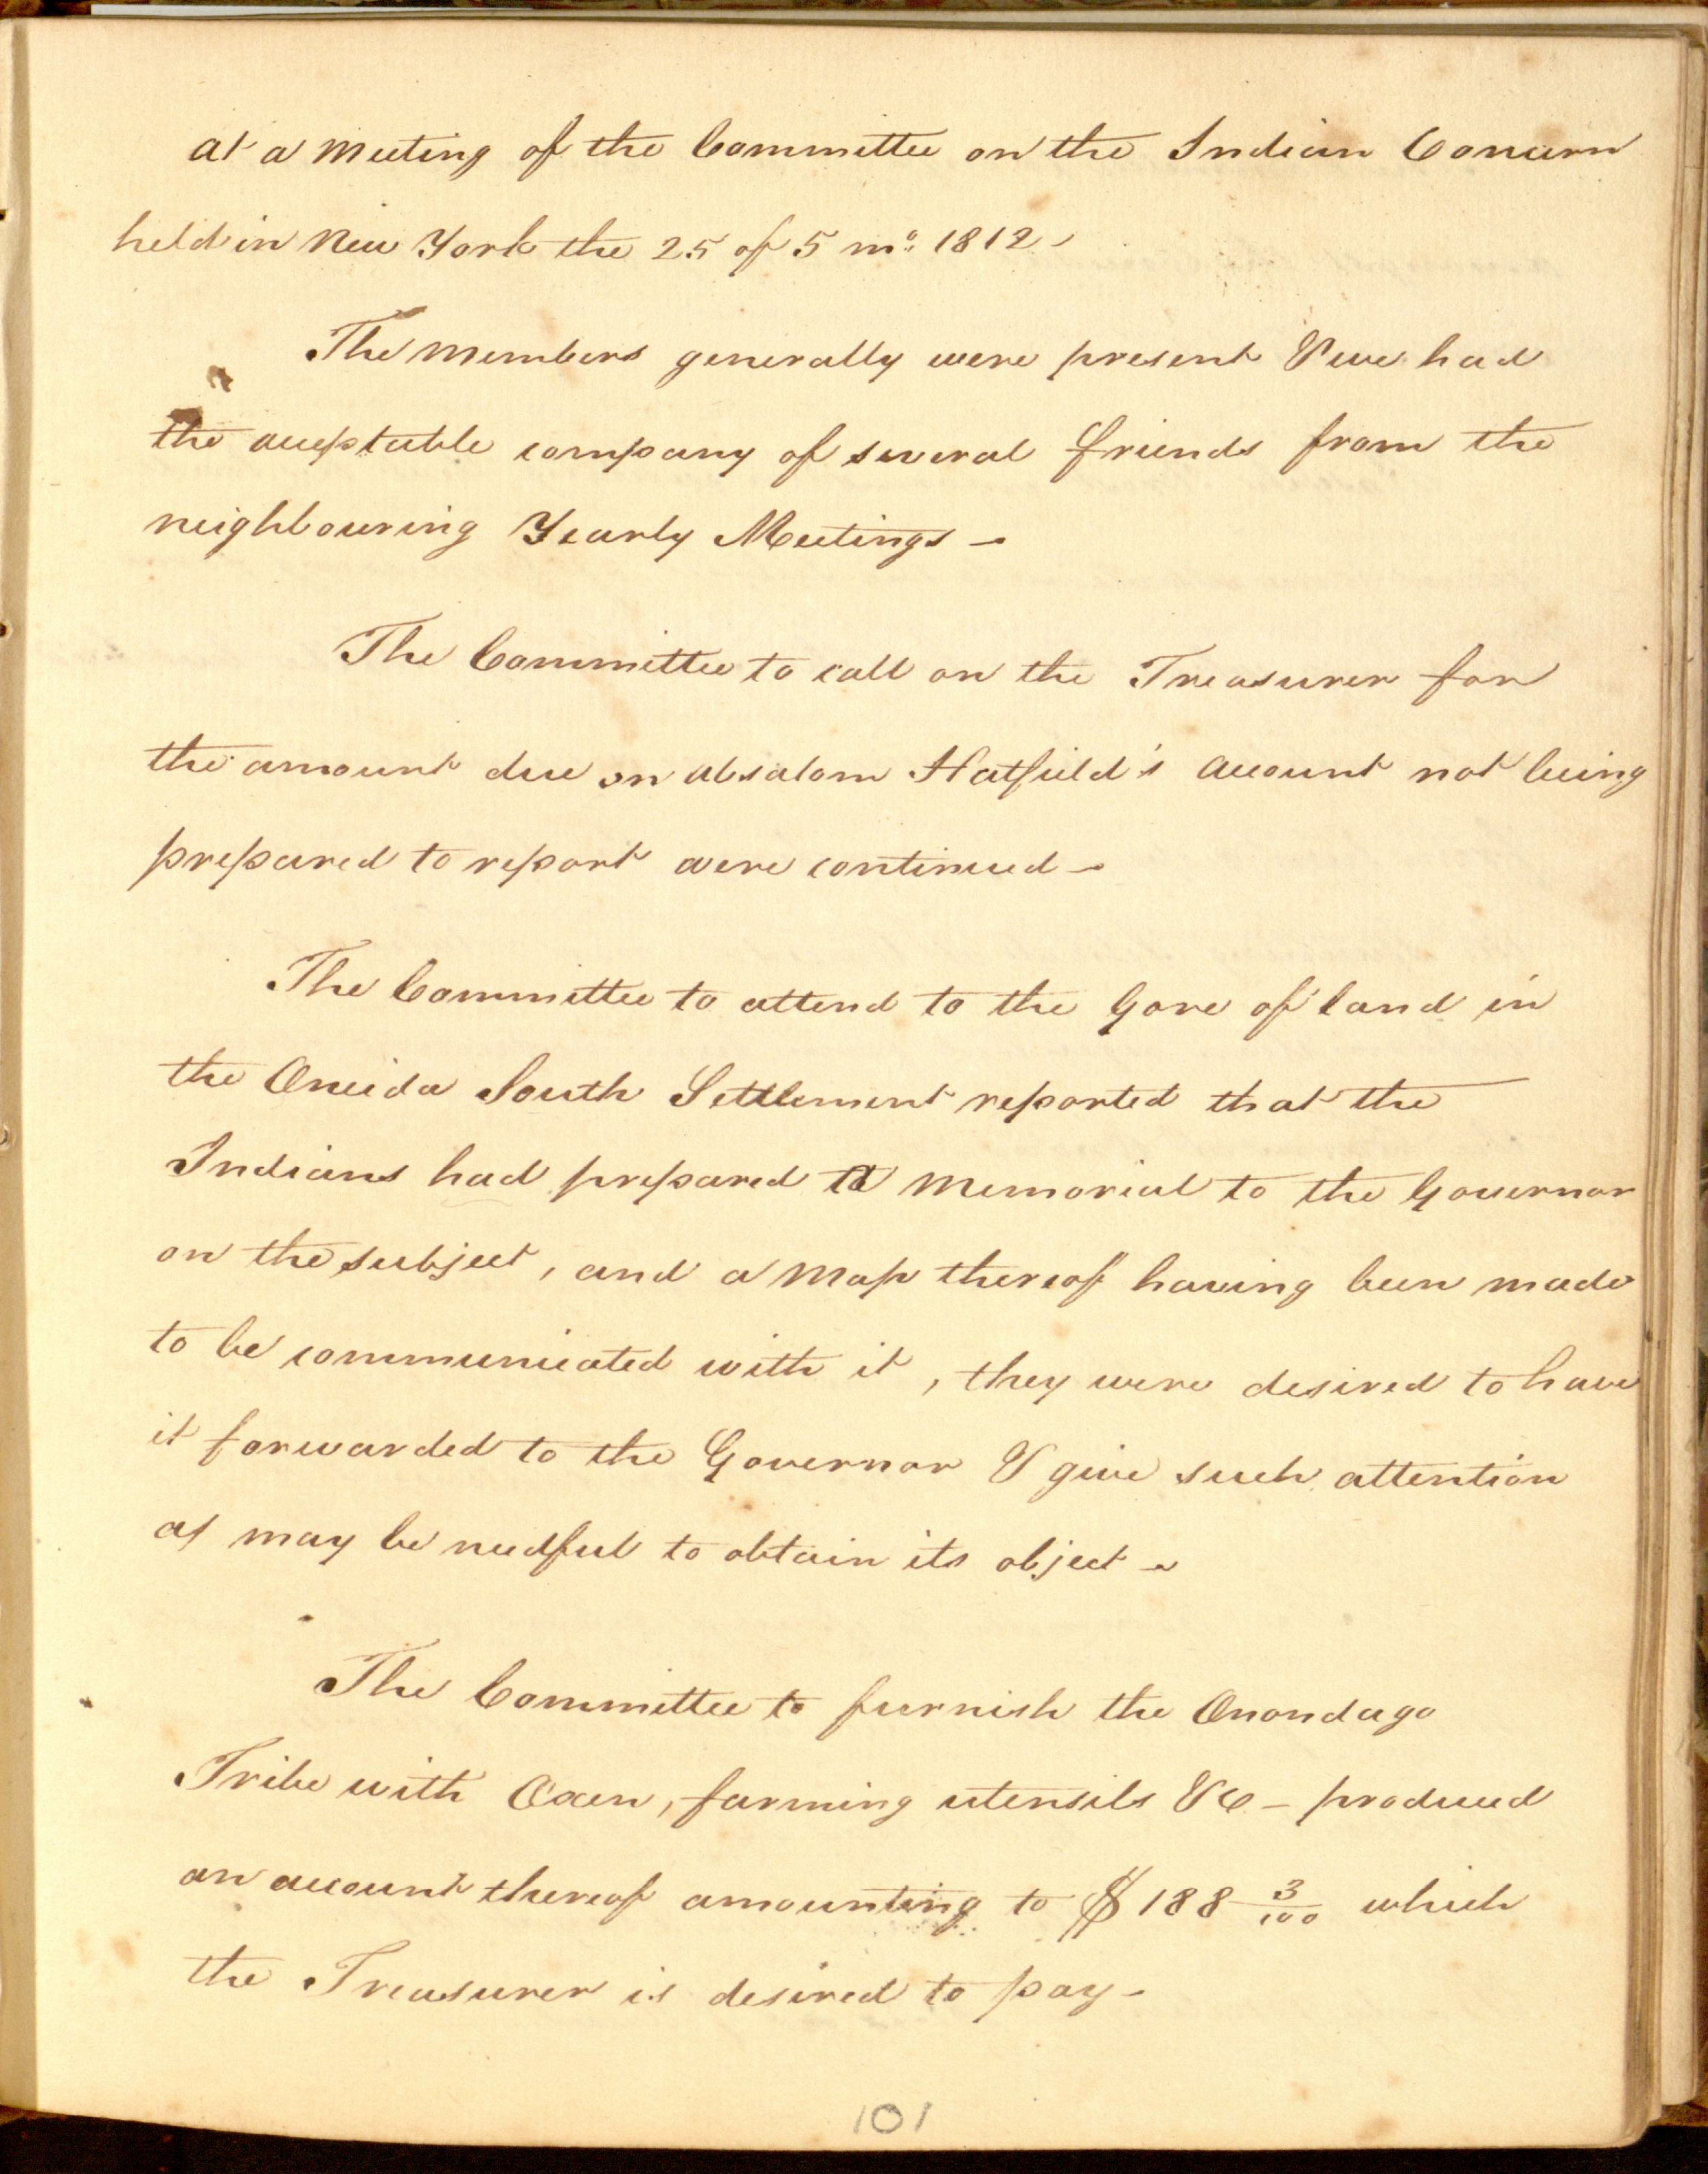 at a Meeting of the Committee on the Indian Concern
held in New York the 25 of 5 mo. 1812 -
The Members generally were present & we had
the acceptable company of several friends from the
neighbouring Yearly Meetings -
The Committee to call on the Treasurer for
the amount due on Absalom Hatfield's account not being
prepared to report were continued -
The Committee to attend to the Gore of land in
the Oneida South Settlement reported that the
Indians had prepared a Memorial to the Governor
on the subject, and a Map thereof having been made
to be communicated with it, they were desired to have
it forwarded to the Governor & give such attention
as may be needful to obtain its object -
The Committee to furnish the Onondago
Tribe with Oxen, farming utensils &c - produced
an account thereof amounting to $188 3/100 which
the Treasurer is desired to pay -
101